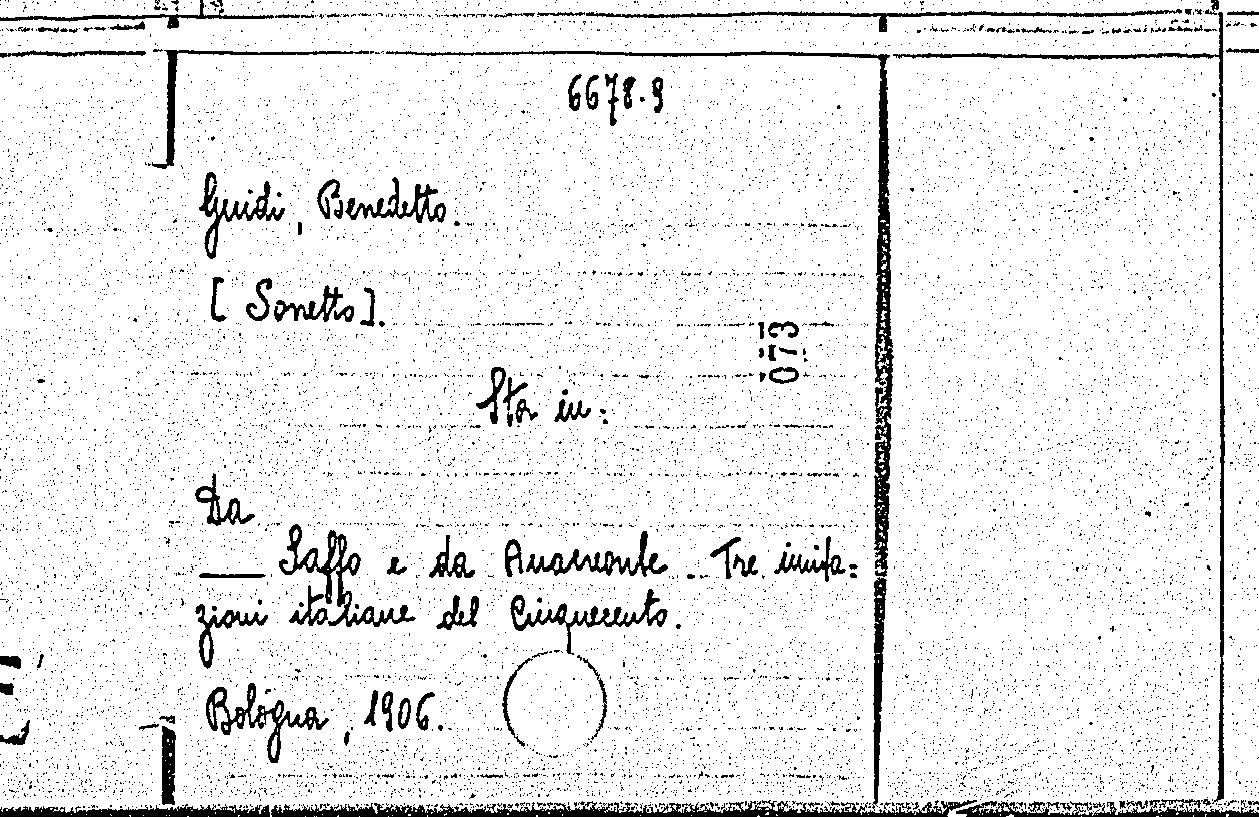 6678.9
Guidi, Benedetto.
[Sonetto].
073
Sta in:
Da
___ Saffo e da Anacreonte. Tre imita=
zioni italiane del Cinquecento.
Bologna, 1906.